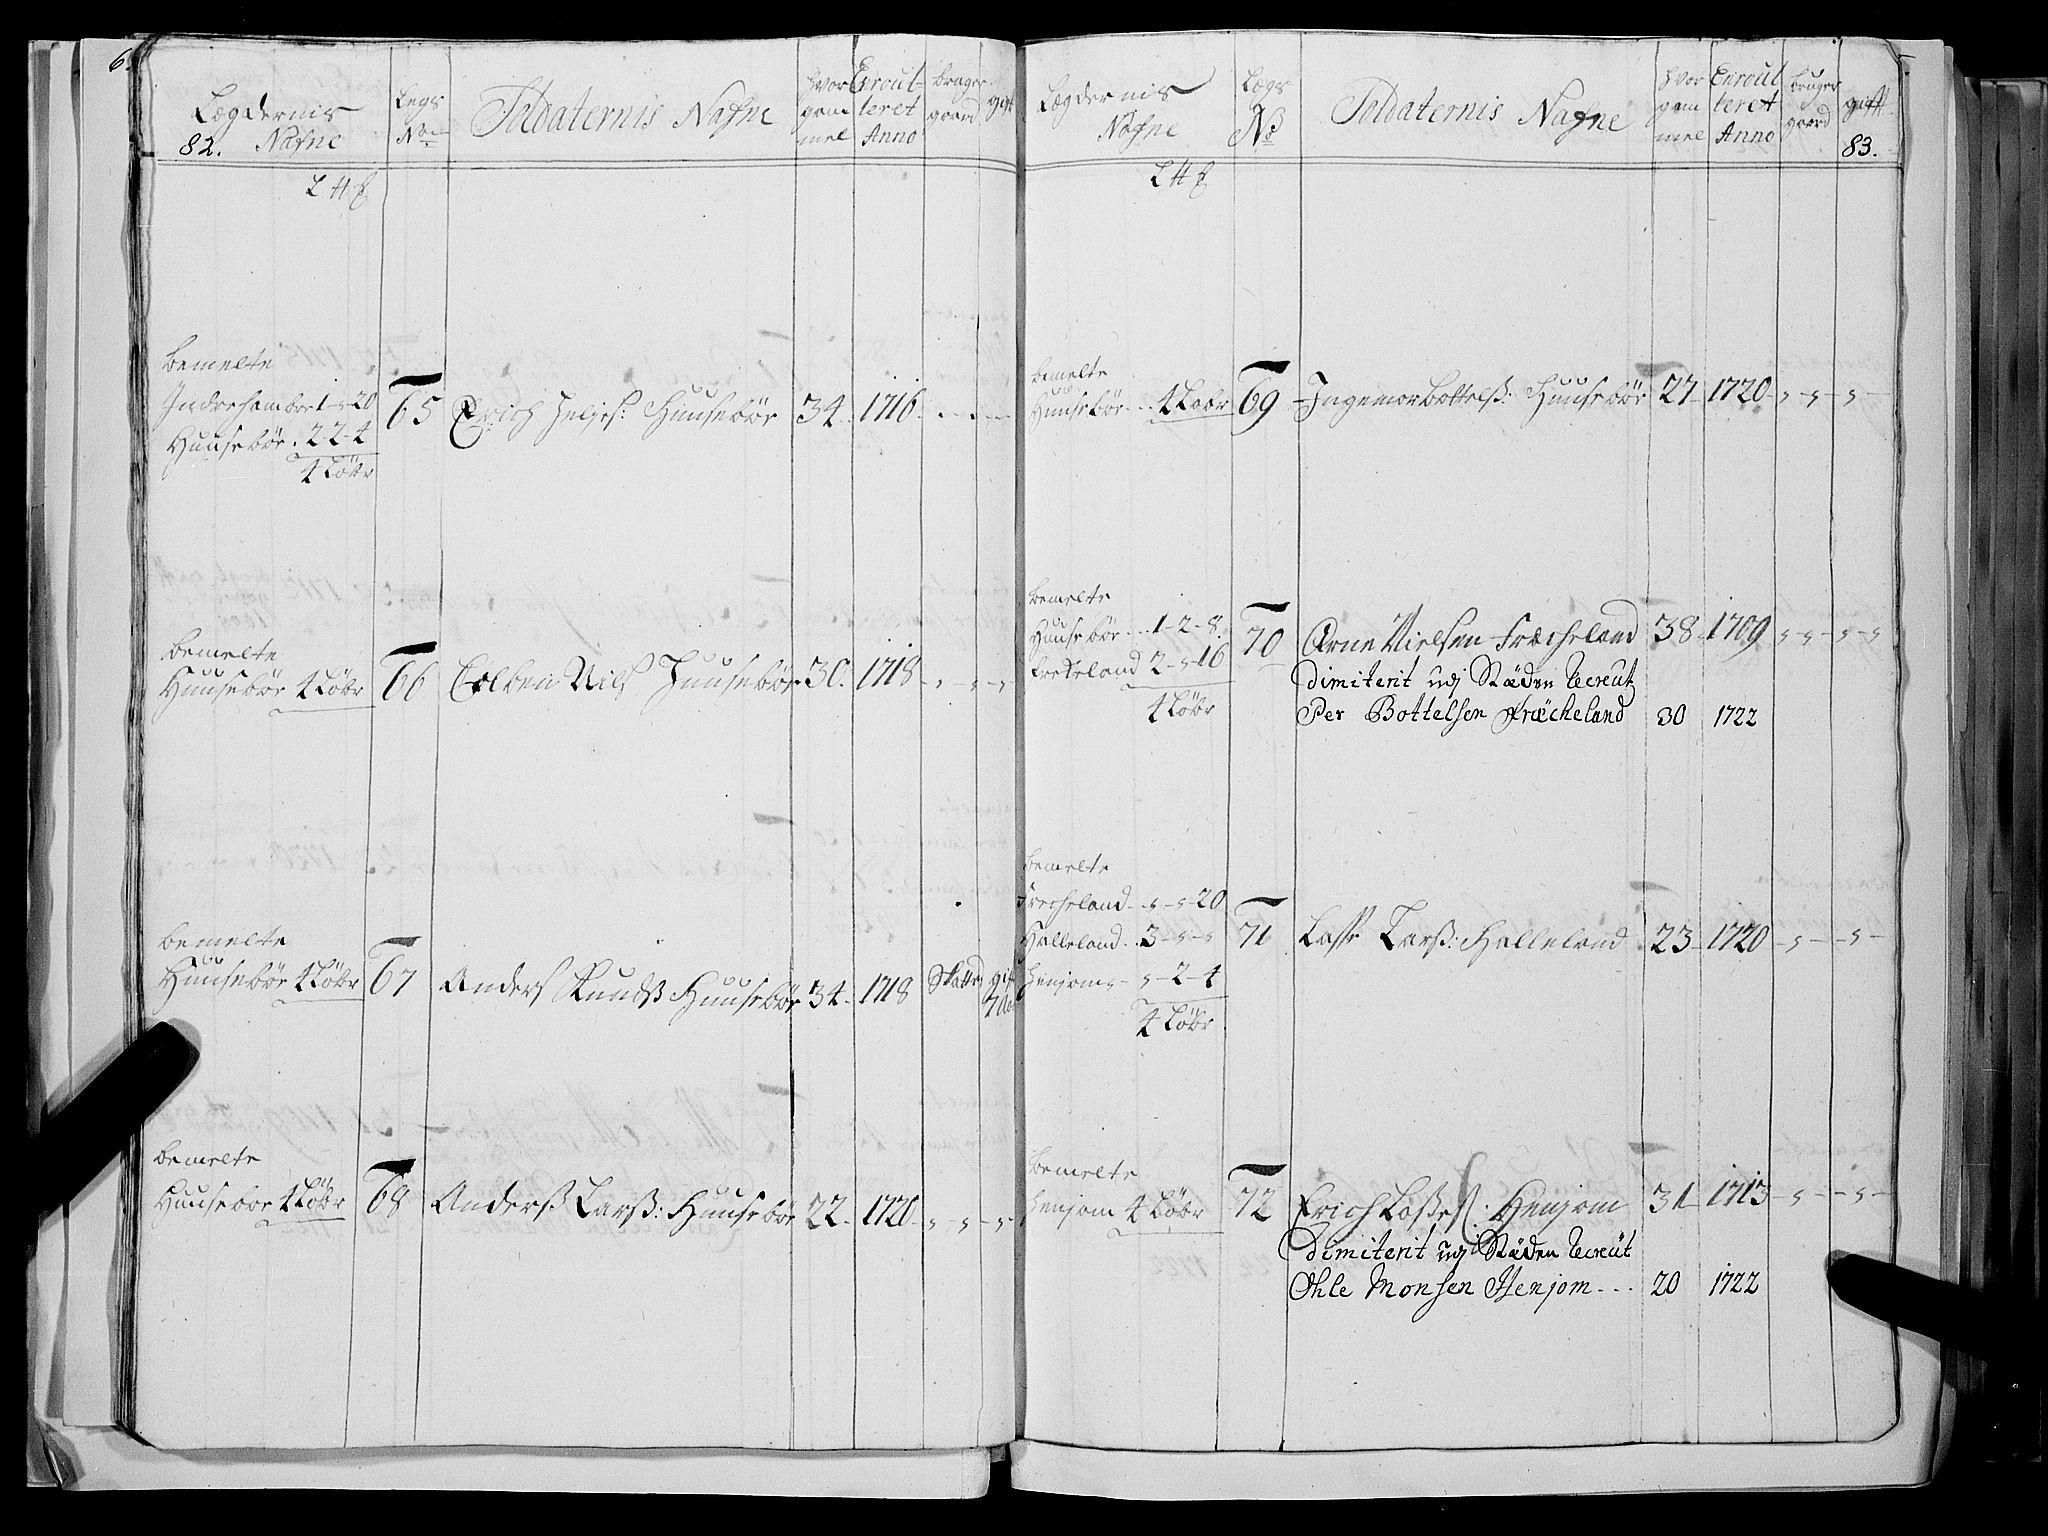 Lægdernis
Nafne
Legs
No
Soldaternis Nafne
hvor
gam
mel
Enroul-
leret
Anno
bruger
gaard
gift
82.
L H f
bemelte
Indrehamber 1 - 20
Huusebör . 2 2 - 4
4 Löbr
65 Erich Heljes: Huusebör 34 1716
bemelte
Huusebör 4 Löbr
66 Colben Nils Huusebör 30. 1718
bemelte
Huusebör 4 Löbr
67 Anders Knudß Huusebör 34. 1718
bemelte
Huusebör 4 Löbr
68 Anderß Larß: Huusebör 22. 1720
Lægdernis
Nafne
Lægs
No
Soldaternis Nafne
hvor
gam
mel
Enroul
leret
Anno
bruger
gaard
gift
83.
L H f
bemelte
Huusebör ... 4 Löbr
69 Ingemor Bottelß: Huusebör 27 1720
bemelte
Huusebör ... 1 - 2 - 8.
Frekeland 2 - 16
4 Löbr
70 Arne Nielsen Fræcheland 38 1709
dimiterit udj Stæden Recreut
Per Bottelsen Fræcheland 30 1722
bemelte
Frecheland - 20
Halleland . 3
Henjom - 2 - 4
4 Löbr
71 Lasse Larß: Halleland 23 1720
bemelte
Henjom 4 Löbr
72 Erich Laßes: Henjom 31 1713
dimiterit udj Stæden Recreüt
Ohle Monsen Henjom ... 20 1722